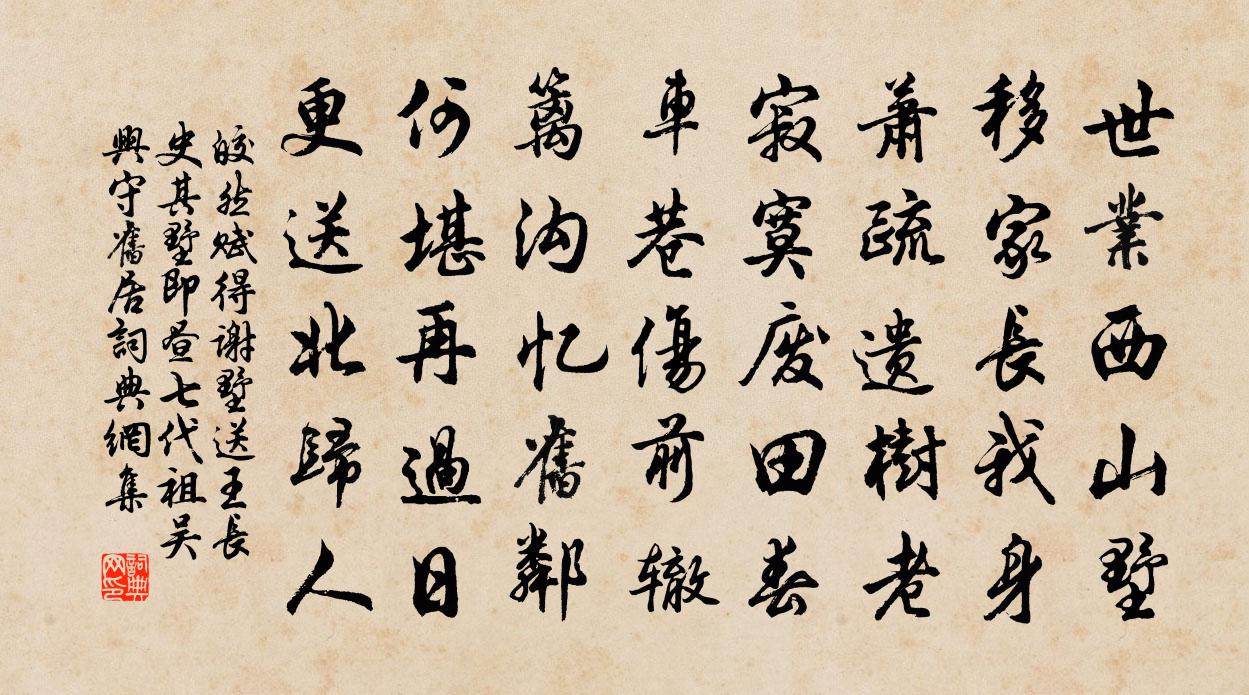 世業西山墅
移家長我身
蕭疏遺樹老
寂寞废田春
車巷傷前辙
籬沟忆舊鄰
何堪再過日
更送北歸人
皎然赋得谢墅送王長
史其墅即昼七代祖吴
興守舊居詞典網集
詞典
网印